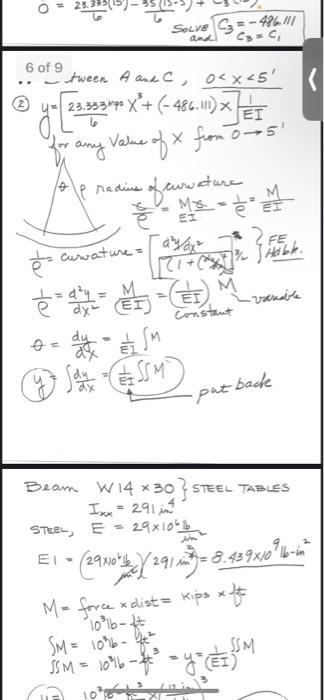 0 = 23.333(15)³ - 35(15-5)³ +
6
6
SOLVE and
C₃ = -486.111
C₃ = C₁
6 of 9
tween A and C, 0<x<5'
② y = [23.333 kips/6 x³ + (-486.111)x] 1/EI
for any value of x from 0→5'
θ ρ radius of curvature
= M / EI = 1/ρ = M/EI
1/ρ = curvature = [d²y/dx² / [1+( )²]^3/2 } FE Hdbk.
1/ρ = d²y/dx² = M/(EI) = (1/EI) M variable
constant
θ = dy/dx = 1/EI ∫M
y = ∫dy/dx = 1/EI ∫∫M
put back
Beam W14 × 30 } STEEL TABLES
Ixx = 291 in⁴
STEEL, E = 29×10⁶ lb/in²
EI = (29×10⁶ lb/in²)(291 in⁴) = 8.439×10⁹ lb-in²
M = force × dist = kips × ft
10³ lb-ft
∫M = 10³ lb-ft²
∫∫M = 10³ lb-ft³ = y = (1/EI) ∫∫M